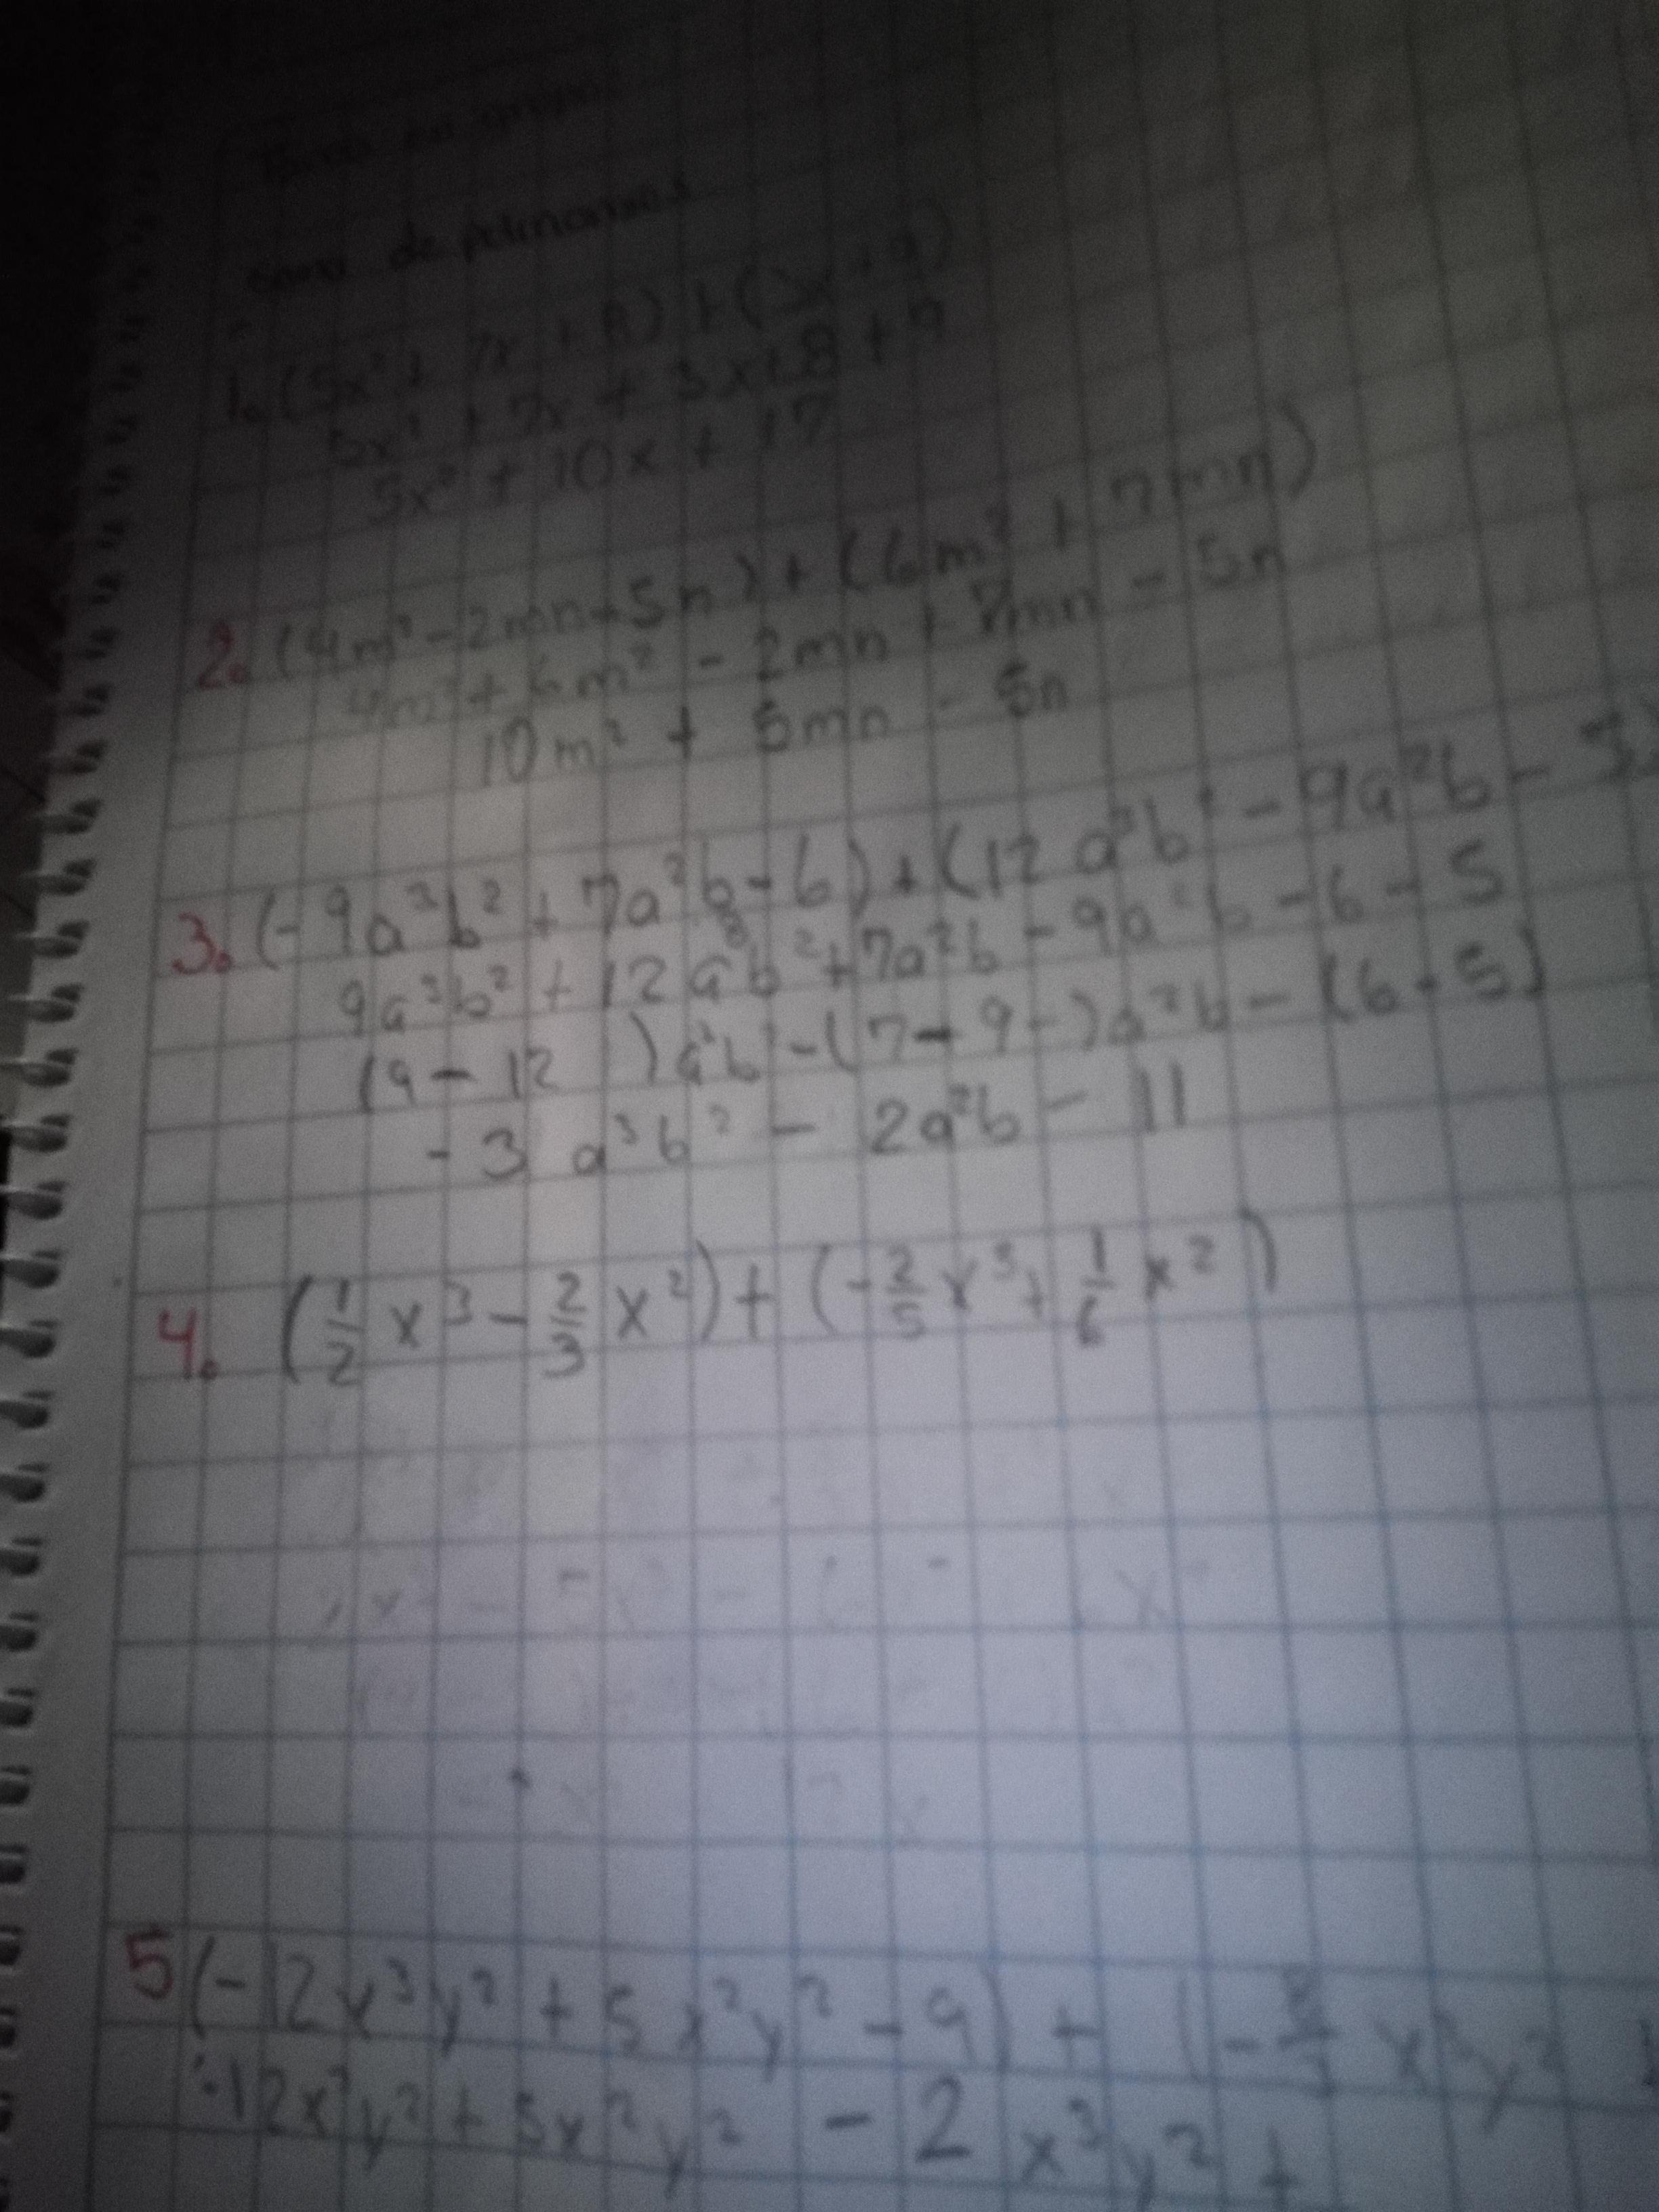 suma de polinomios
1. (5x² + 7x + 8) + (3x + 9)
5x² + 7x + 3x + 8 + 9
5x² + 10x + 17
2. (4m² - 2mn - 5n) + (6m² + 7mn)
4m² + 6m² - 2mn + 7mn - 5n
10m² + 5mn - 5n
3. (-9a³b² + 7a²b - 6) + (12a³b² - 9a²b - 5)
9a³b² + 12a³b² + 7a²b - 9a²b - 6 - 5
(9 - 12 ) a³b² - (7 - 9 -) a²b - (6 - 5)
- 3 a³b² - 2a²b - 11
4. (1/2 x³ - 2/3 x²) + (-2/5 x³ + 1/6 x²)
5 (-12x³y² + 5x²y² - 9) + (- x³y²
-12x³y² + 5x²y² - 2 x³y² +